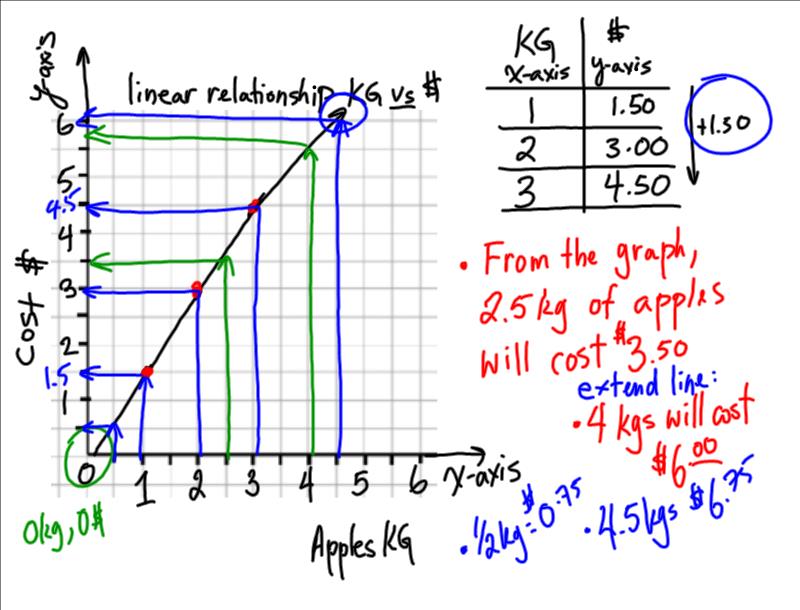 y-axis
Cost $
linear relationship KG vs $
6
5
4.5
4
3
2
1.5
1
0
1
2
3
4
5
6
x-axis
Apples KG
0kg, 0$
KG $
x-axis y-axis
1 1.50
2 3.00
3 4.50
+1.50
• From the graph,
2.5kg of apples
will cost $3.50
extend line:
• 4 kgs will cost
$6.00
• 1/2kg = $0.75
• 4.5kgs $6.75